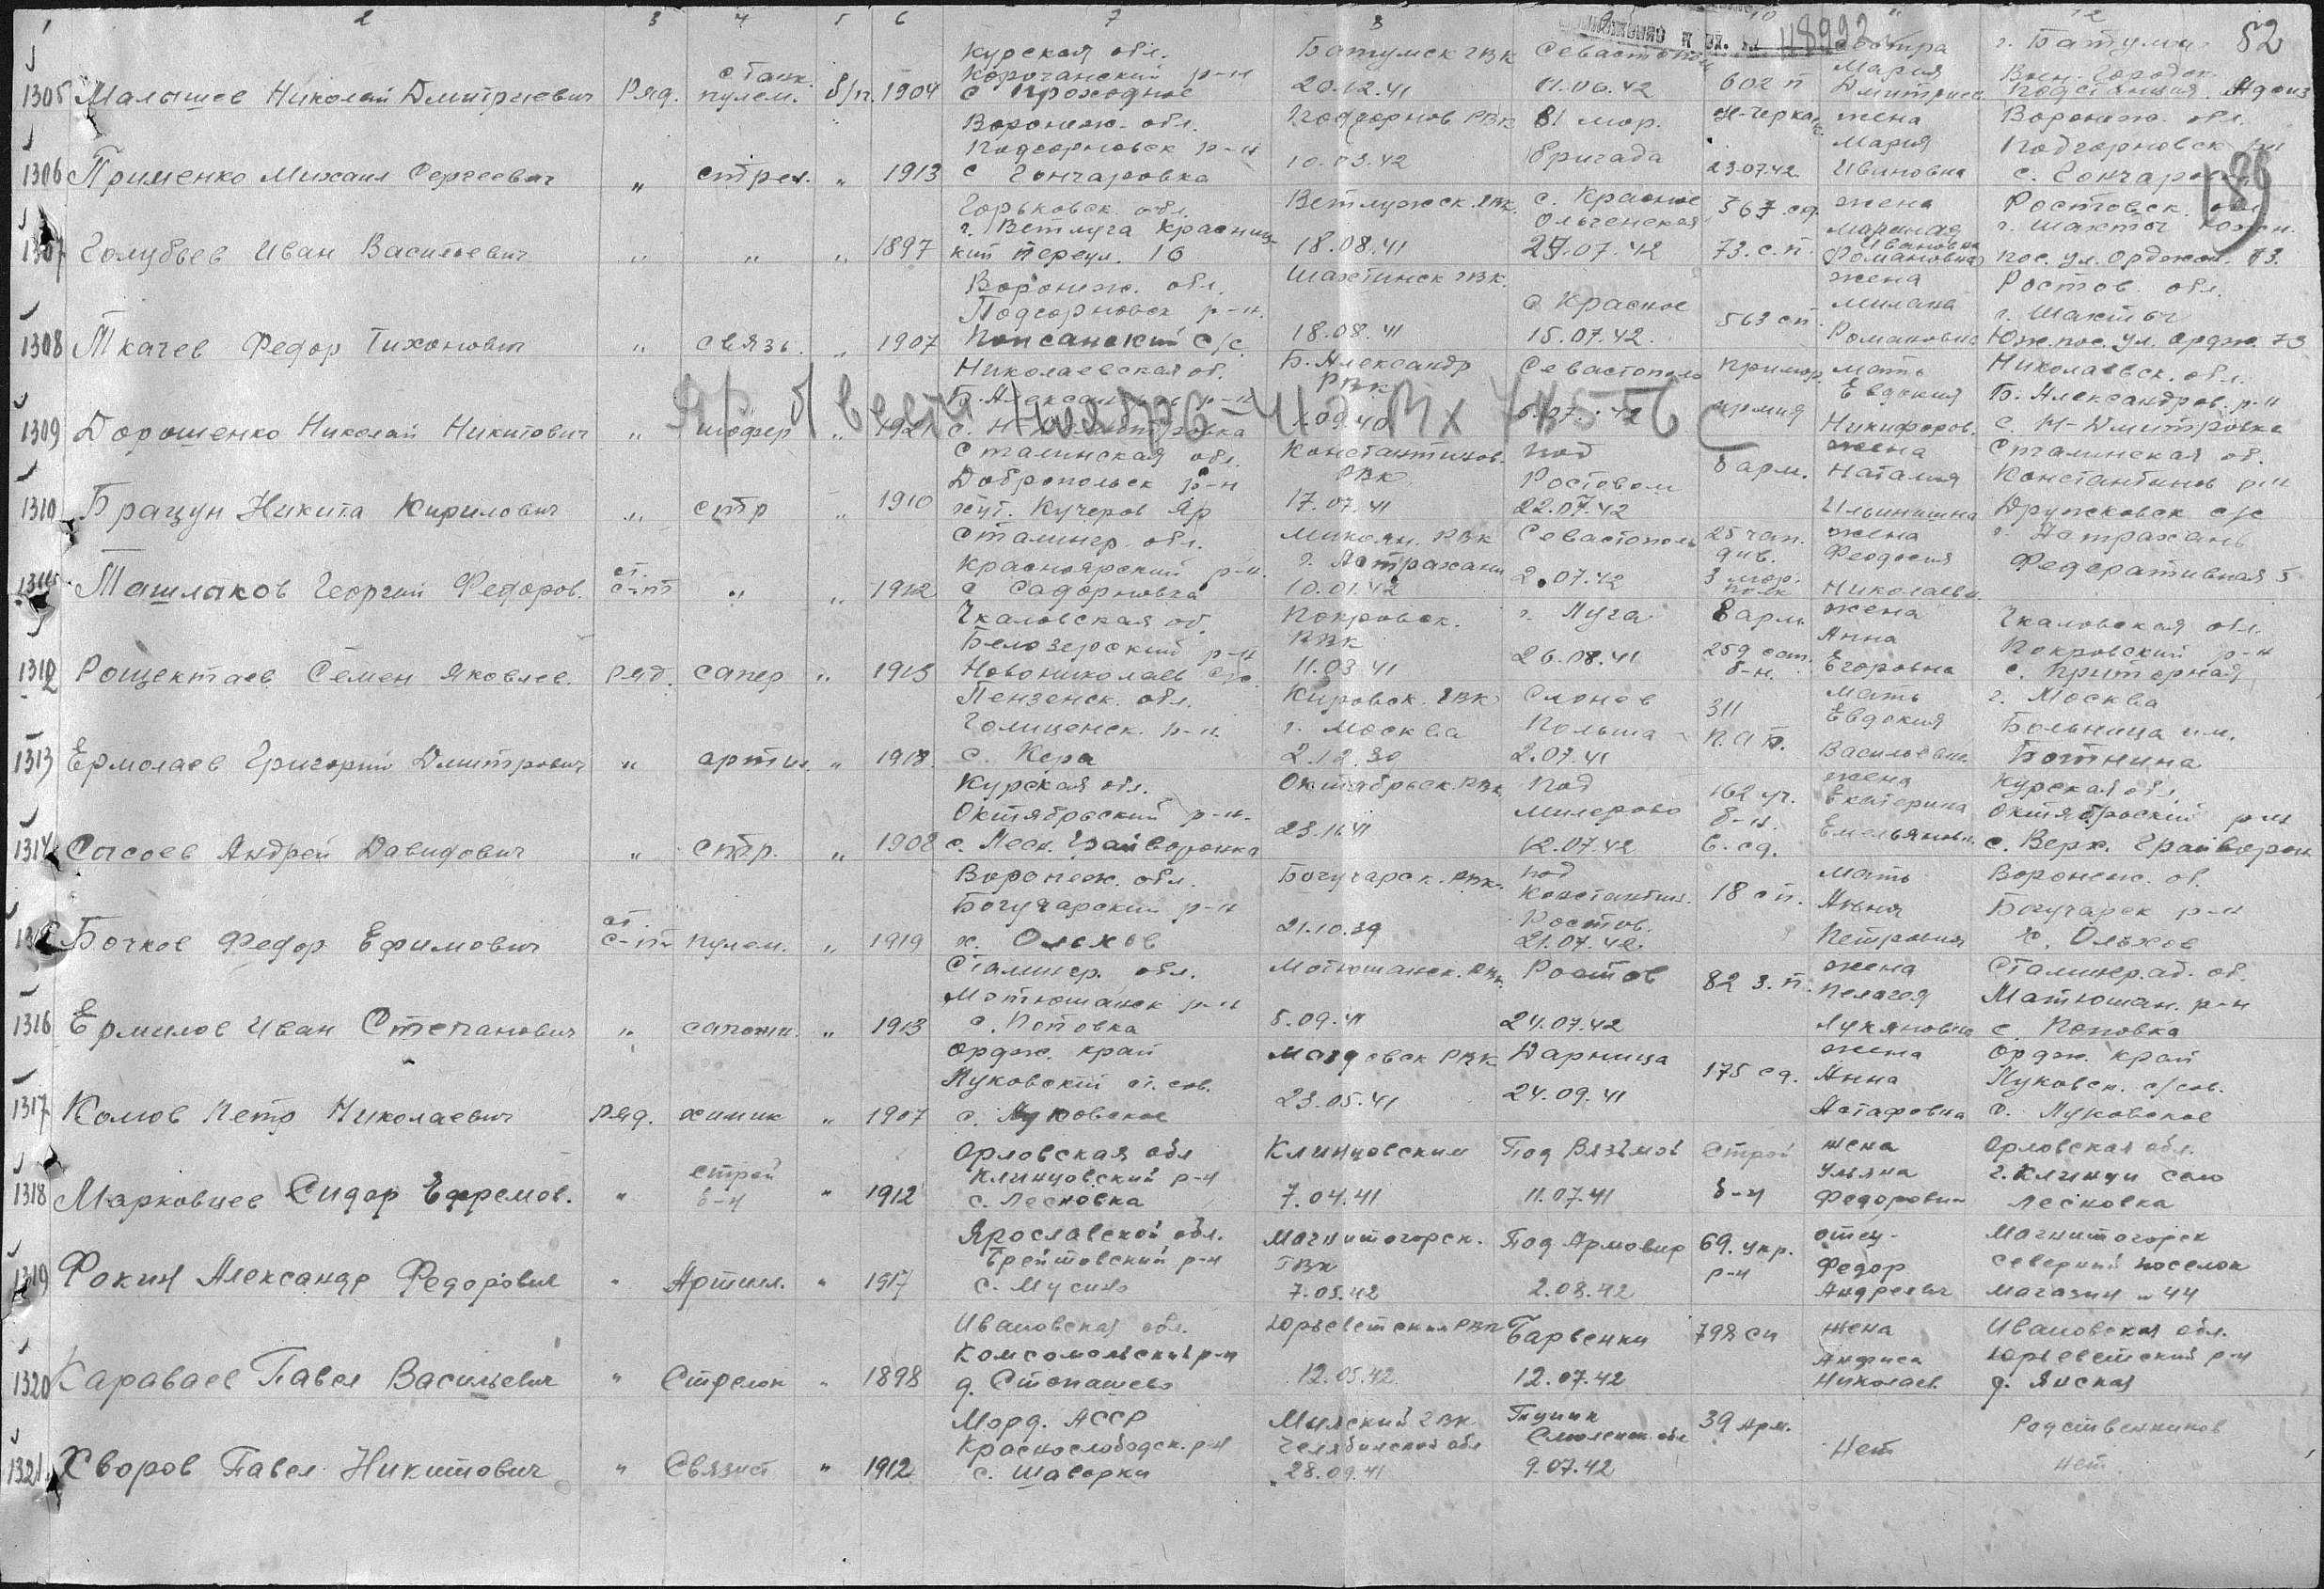 1 2 3 4 5 6 7 8 10 11 12
48992
52
189
1305 Малышев Николай Дмитриевич Ряд. станк. пулем. б/п. 1904 Курская обл. Корочанский р-н с Проходное Батумск ГВК 20.12.41 Севастополь 11.06.42 602 п сестра Мария Дмитриев. г. Батуми Воен. Городок подстанция
1306 Применко Михаил Сергеевич " стрел. " 1913 Воронеж. обл. Подгорновск р-н с Гончаровка Подгорнов РВК 10.03.42 81 мор. бригада 23.07.42 жена Мария Ивановна Воронеж. обл. Подгорновск р-н с. Гончаровка
1307 Голубьев Иван Васильевич " " " 1897 Горьковск. обл. г. Ветлуга Красниц- кий переул. 16 Ветлужск. РВК. 18.08.41 с. Красное Ольгенская 24.07.42 367 сд. 73. с.п. жена Ивановна Романовна Ростовск. обл. г. Шахты Южн. пос. ул. Орджон. 73.
1308 Ткачев Федор Тихонович " связь. " 1907 Воронеж. обл. Подгорновск р-н. с/с. Шахтинск ГВК. 18.08.41 с Красное 15.07.42. 563 сп. жена Милана Романовна Ростов. обл. г. Шахты Юж. пос. ул. Ордж. 73
1309 Дорошенко Николай Никитович " шофер " 1921 Николаевская об. Б. Александров р-н Б. Александр РВК 09.40 Севастополь 5.07.42 Примор. армия мать Евдокия Никифоров. Николаевск. обл. Б. Александров. р-н с. Н-Дмитровка
1310 Брацун Никита Кирилович " стр " 1910 Сталинская обл. Добропольск р-н хут. Кучеров Яр Константинов. РВК 17.07.41 под Ростовом 22.07.42 8 арм. жена Наталия Ильинишна Сталинская об. Константинов р-н Дружковск с/с
1311 Ташлаков Георгий Федоров. ст. с-нт " " 1912 Сталингр. обл. Красноярский р-н. с Садорновка Микоян. РВК г. Астрахани 10.01.42 Севастополь 2.07.42 25 чап. див. 3 мор. полк жена Феодосия Николаевн. г. Астрахань Федеративная 5
1312 Рощектаев Семен Яковлев. ряд. сапер " 1913 Чкаловская об. Белозерский р-н Новониколаев с/с. Покровск. РВК 11.03 41 г. Луга 26.08.41 8 арм 259 сап. б-н. жена Анна Егоровна Чкаловская обл. Покровский р-н с. Приторная
1313 Ермолаев Григорий Дмитрович " артил. " 1918. Пензенск. обл. Голиценск. р-н. с. Кера Кировск. РВК г. Москва 2.12.39 Слонов Польша 2.07.41 311 п.а.п. мать Евдокия Васильевна г. Москва Больница им. Боткина
1314 Сысоев Андрей Давидович " стр. " 1902 Курская обл. Октябрьский р-н. с. Песк. Грайворонка Октябрьск. РВК 23.11.41 под Милерово 12.07.42 162 уч. б-н. 6. сд. жена Екатерина Емельяновн. Курская обл. Октябрьский р-н с. Верх. Грайворон
1315 Бочков Федор Ефимович ст. с-нт пулем. " 1919 Воронеж. обл. Богучарский р-н х. Ольхов Богучарск. РВК. 21.10.39 под Константин. Ростов. 21.07.42. 18 сп. мать Анна Петровна Воронеж. об. Богучарск р-н х. Ольхов
1316 Ермилов Иван Степанович " сапожн. " 1913 Сталингр. обл. Мотюшанск р-н с. Поповка Мотюшанск. РВК. 5.09.41 Ростов 24.07.42 82 з. п. жена Пелагея Лукяновна Сталинград. об. Матюшан. р-н с. Поповка
1317 Комов Петр Николаевич ряд. химик " 1907 Ордж. край Луковский ст. сов. с. Луковское Моздовск РВК 23.05.41 Дарница 24.09.41 175 сд. жена Анна Астафовна Ордж. край Луковск. с/сов. с. Луковское
1318 Марковцев Сидор Ефремов. " строй б-н " 1912 Орловская обл Клинцовский р-н с. Лесновка Клинцовским 7.04.41 Под Вязьмой 11.07.41 Строй б-н жена Ульяна Федоровн Орловская обл. г. Клинцы село Лесновка
1319 Фокин Александр Федорович " Артил. " 1917 Ярославской обл. Брейтовский р-н с. Мусино Магнитогорск. ГВК 7.05.42 Под Армовир 2.08.42 69. укр. р-н отец- Федор Андреевич Магнитогорск Северный поселок магазин 44
1320 Караваев Павел Васильевич " Стрелок " 1898 Ивановская обл. Комсомольский р-н д. Стопашево Юрьеветский РВК 12.05.42 Барвенки 12.07.42 798 сп жена Анфиса Николаев. Ивановская обл. Юрьеветский р-н д. Янская
1321 Хворов Павел Никитович " Связист " 1912 Морд. АССР Краснослободск. р-н с. Шаворки Миясский ГВК Челябинской обл 28.09.41 Смоленск. обл 9.07.42 39 Арм. Нет Родственников нет